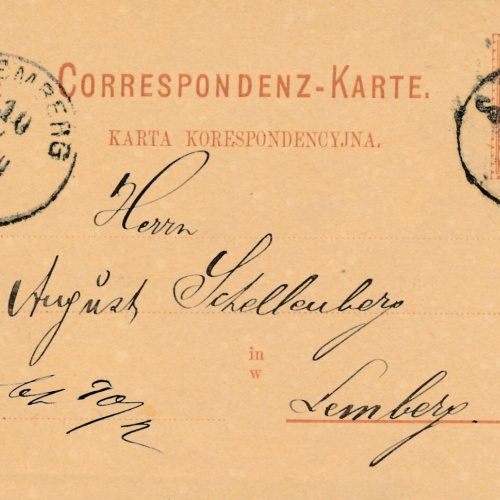 LEMBERG
10
CORRESPONDENZ-KARTE.
KARTA KORESPONDENCYJNA.
Herrn
August Schellenberg
in
w
Lemberg.